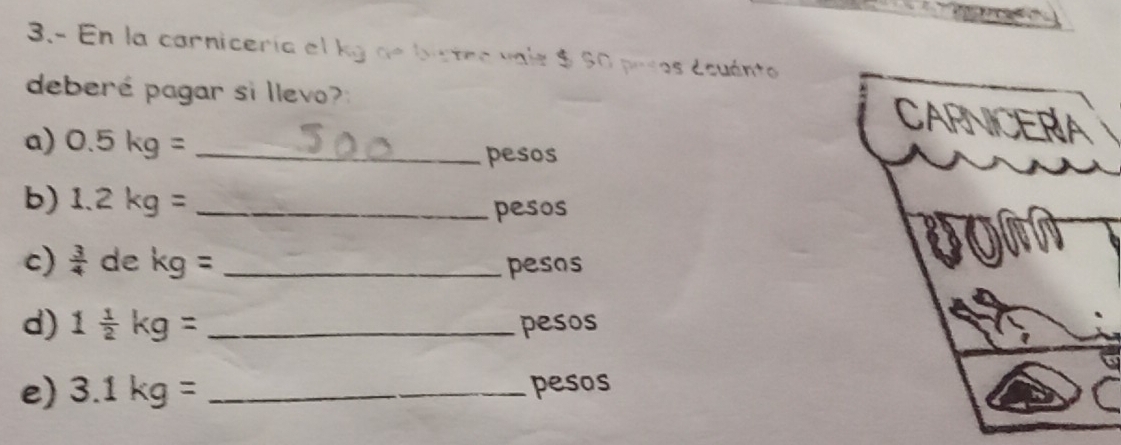 3.- En la carnicería el kg de bistec vale $ 90 pesos ¿cuánto
deberé pagar si llevo?:
a) 0.5 kg = 500 pesos
b) 1.2 kg = pesos
c) 3/4 de kg = pesos
d) 1 1/2 kg = pesos
e) 3.1 kg = pesos
CARNICERÍA